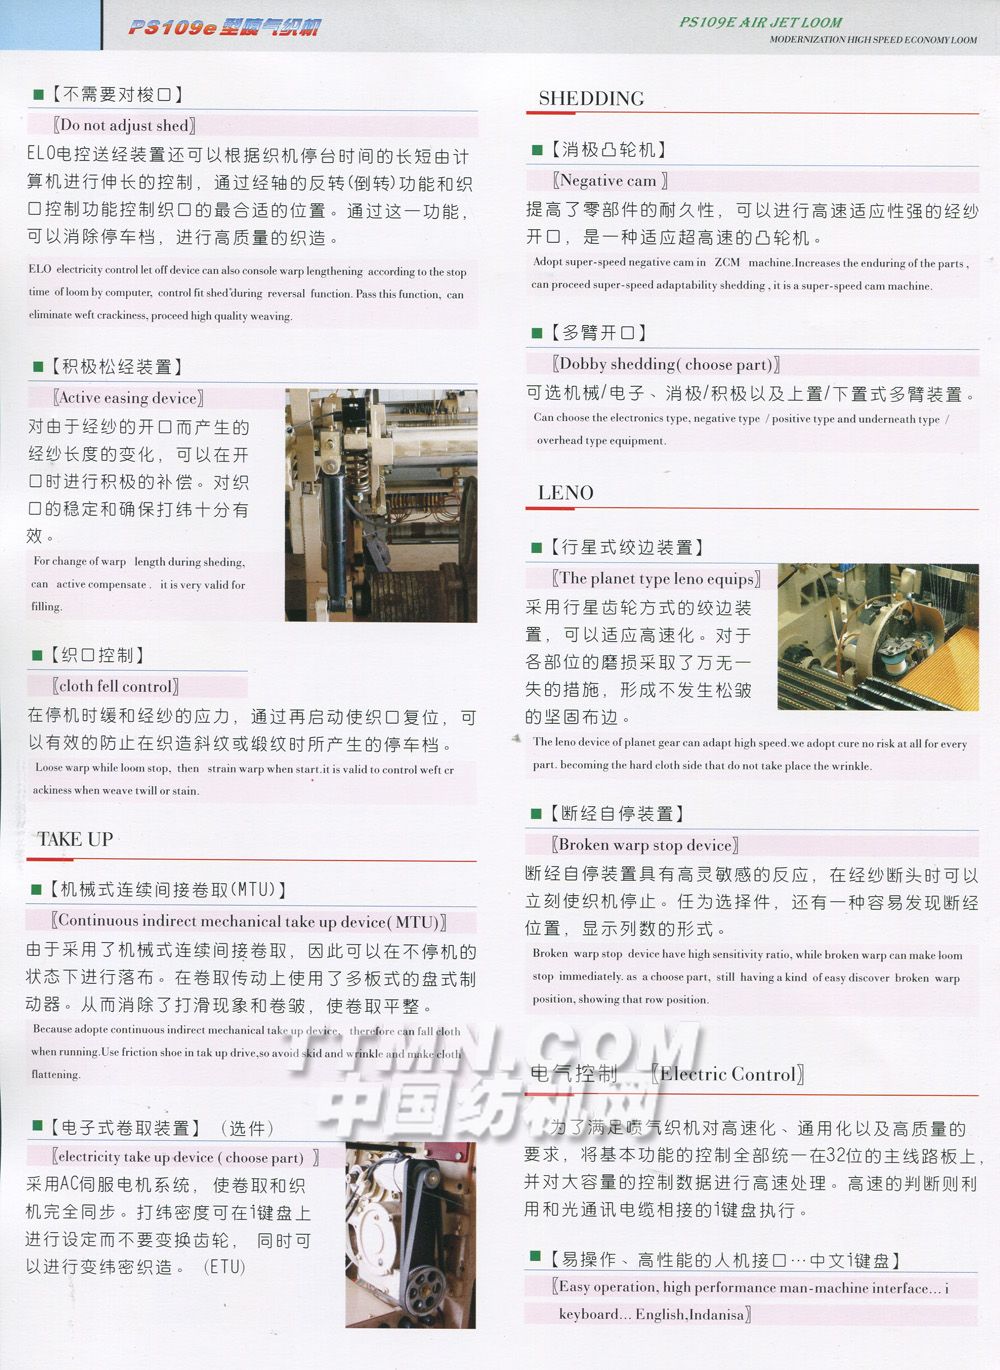 PS109e 型喷气织机
PS109E AIR JET LOOM
MODERNIZATION HIGH SPEED ECONOMY LOOM
■【不需要对梭口】
〖Do not adjust shed〗
ELO电控送经装置还可以根据织机停台时间的长短由计
算机进行伸长的控制，通过经轴的反转(倒转)功能和织
口控制功能控制织口的最合适的位置。通过这一功能，
可以消除停车档，进行高质量的织造。
ELO electricity control let off device can also console warp lengthening according to the stop
time of loom by computer, control fit shed"during reversal function. Pass this function, can
eliminate weft crackiness, proceed high quality weaving.
■【积极松经装置】
〖Active easing device〗
对由于经纱的开口而产生的
经纱长度的变化，可以在开
口时进行积极的补偿。对织
口的稳定和确保打纬十分有
效。
For change of warp length during sheding,
can active compensate . it is very valid for
filling.
■【织口控制】
〖cloth fell control〗
在停机时缓和经纱的应力，通过再启动使织口复位，可
以有效的防止在织造斜纹或缎纹时所产生的停车档。
Loose warp while loom stop, then strain warp when start.it is valid to control weft cr
ackiness when weave twill or stain.
TAKE UP
■【机械式连续间接卷取(MTU)】
〖Continuous indirect mechanical take up device( MTU)〗
由于采用了机械式连续间接卷取，因此可以在不停机的
状态下进行落布。在卷取传动上使用了多板式的盘式制
动器。从而消除了打滑现象和卷皱，使卷取平整。
Because adopte continuous indirect mechanical take up device, therefore can fall cloth
when running.Use friction shoe in tak up drive,so avoid skid and wrinkle and make cloth
flattening.
■【电子式卷取装置】（选件）
〖electricity take up device ( choose part) 〗
采用AC伺服电机系统，使卷取和织
机完全同步。打纬密度可在i键盘上
进行设定而不要变换齿轮， 同时可
以进行变纬密织造。(ETU)
SHEDDING
■【消极凸轮机】
〖Negative cam 〗
提高了零部件的耐久性，可以进行高速适应性强的经纱
开口，是一种适应超高速的凸轮机。
Adopt super-speed negative cam in ZCM machine.Increases the enduring of the parts ,
can proceed super-speed adaptability shedding , it is a super-speed cam machine.
■【多臂开口】
〖Dobby shedding( choose part)〗
可选机械/电子、消极/积极以及上置/下置式多臂装置。
Can choose the electronics type, negative type / positive type and underneath type /
overhead type equipment.
LENO
■【行星式绞边装置】
〖The planet type leno equips〗
采用行星齿轮方式的绞边装
置，可以适应高速化。对于
各部位的磨损采取了万无一
失的措施，形成不发生松皱
的坚固布边。
The leno device of planet gear can adapt high speed.we adopt cure no risk at all for every
part. becoming the hard cloth side that do not take place the wrinkle.
■【断经自停装置】
〖Broken warp stop device〗
断经自停装置具有高灵敏感的反应，在经纱断头时可以
立刻使织机停止。任为选择件，还有一种容易发现断经
位置，显示列数的形式。
Broken warp stop device have high sensitivity ratio, while broken warp can make loom
stop immediately. as a choose part, still having a kind of easy discover broken warp
position, showing that row position.
电气控制 〖Electric Control〗
为了满足喷气织机对高速化、通用化以及高质量的
要求，将基本功能的控制全部统一在32位的主线路板上，
并对大容量的控制数据进行高速处理。高速的判断则利
用和光通讯电缆相接的i键盘执行。
■【易操作、高性能的人机接口…中文i键盘】
〖Easy operation, high performance man-machine interface... i
keyboard... English,Indanisa〗
TTMN.COM
中国纺机网